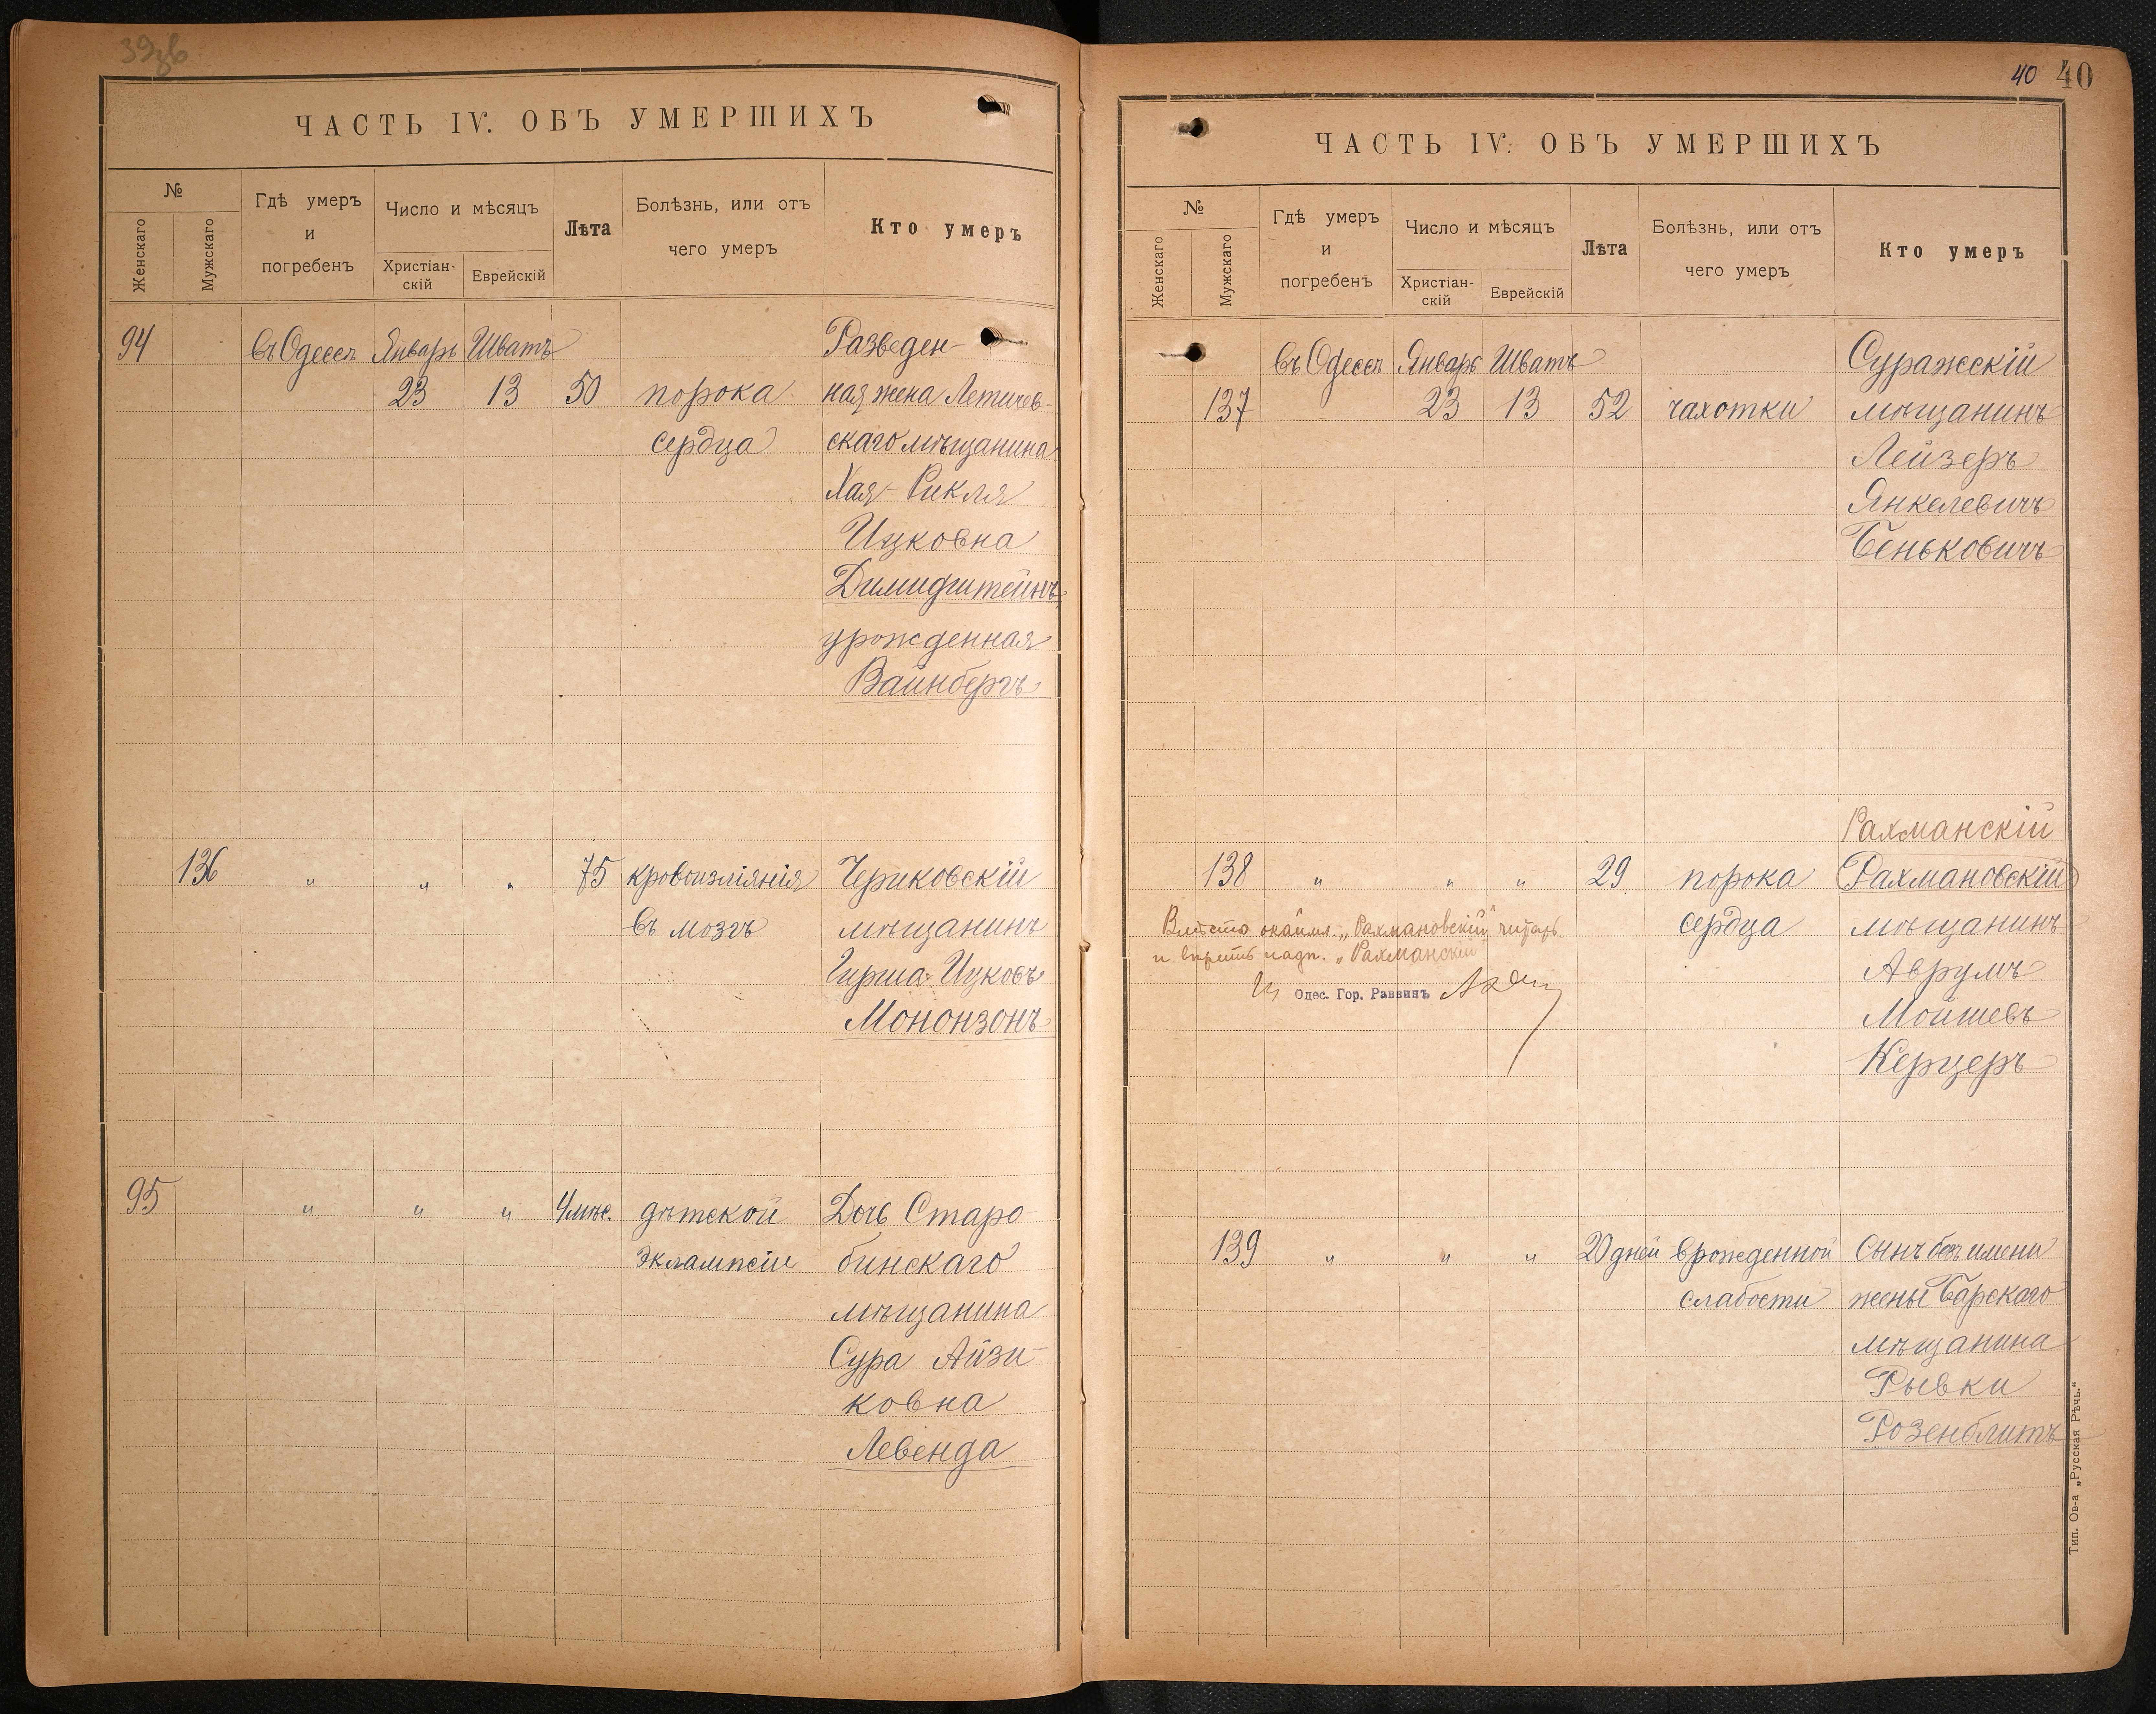 39об
ЧАСТЬ IV. ОБЪ УМЕРШИХЪ
№
Женскаго
Мужскаго
Гдѣ умеръ
и
погребенъ
Число и мѣсяцъ
Христіан-
скій
Еврейскій
Лѣта
Болѣзнь, или отъ
чего умеръ
Кто умеръ
94 въ Одессѣ Январь Шватъ Разведен-
23 13 50 порока ная жена Летичев-
сердца скаго мѣщанина
Хая-Рикля
Ицковна
Димидштейнъ
урожденная
Вайнбергъ
136 " " " 75 кровоизліянія Чериковскій
въ мозгъ мѣщанинъ
Гирша Ицковъ
Мононзонъ
95 " " " 4 мѣс. дѣтской Дочь Старо
эклампсіи бинскаго
мѣщанина
Сура Айзи-
ковна
Левенда
40 40
ЧАСТЬ IV. ОБЪ УМЕРШИХЪ
№
Женскаго
Мужскаго
Гдѣ умеръ
и
погребенъ
Число и мѣсяцъ
Христіан-
скій
Еврейскій
Лѣта
Болѣзнь, или отъ
чего умеръ
Кто умеръ
въ Одессѣ Январь Шватъ Суражскій
137 23 13 52 чахотки мѣщанинъ
Лейзеръ
Янкелевичъ
Беньковичъ
Рахманскій
138 " " " 29 порока Рахмановскій
сердца мѣщанинъ
Вмѣсто окайм. „Рахмановскій" читать
и вѣрить надп. „Рахманскій"
Одес. Гор. Раввинъ
Аврумъ
Мойшевъ
Керцеръ
139 " " " 20 дней врожденной Сынъ безъ имени
слабости жены Барскаго
мѣщанина
Рывки
Розенблитъ
Тип. Ов-а „Русская Рѣчь."